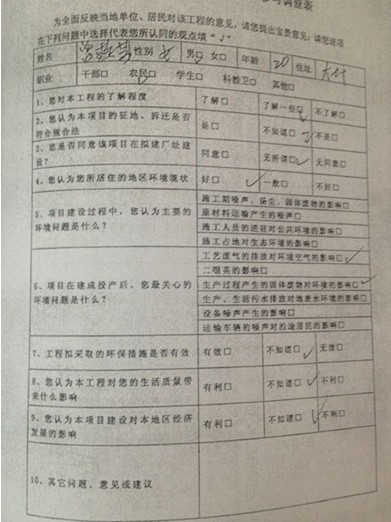 调查表
为全面反映当地单位、居民对该工程的意见，请您提出宝贵意见；请您逐项
在下列问题中选择代表您所认同的观点填“√”
姓名 性别 女 男□ 女□ 年龄 20 住址
职业 干部□ 农民□ 学生□ 科教卫□ 其他□
1、您对本工程的了解程度 了解□ 了解一些□ 不了解□
2、您认为本项目的征地、拆迁是否符合规合法 是□ 不知道□ 不是□
3、您是否同意该项目在拟建厂经建设？ 同意□ 无所谓□ 无同意□
4、您认为您所居住的地区环境现状 好□ 一般□ 不好□
5、项目建设过程中，您认为主要的环境问题是什么？
施工期噪声、扬尘、固体废物的影响□
原材料运输产生的噪声□
施工人员的进驻对公共环境的影响□
施工占地对生态环境的影响□
6、项目在建成投产后，您最关心的环境问题是什么？
工艺废气的排放对环境空气的影响□
二噁英的影响□
生产过程产生的固体废物对环境的影响□
生产、生活污水排放对地表水环境的影响□
设备噪声产生的影响□
运输车辆的噪声对沿途居民的影响□
7、工程拟采取的环保措施是否有效 有效□ 不知道□ 无效□
8、您认为本工程对您的生活质量带来什么影响 有利□ 不知道□ 不利□
9、您认为本项目建设对本地区经济发展的影响 有利□ 不知道□ 不利□
10、其它问题、意见或建议